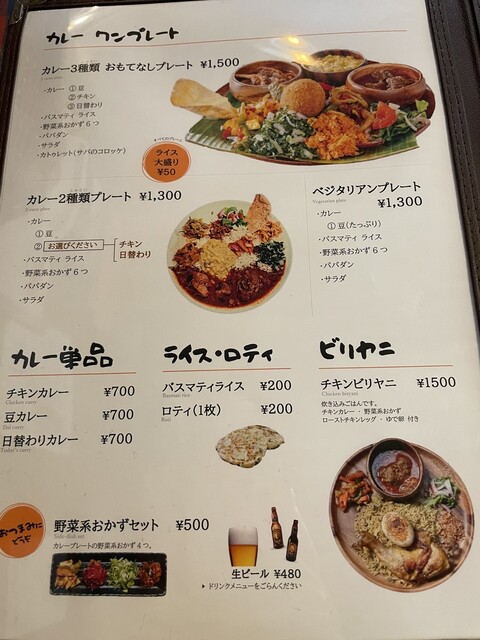 カレー ワンプレート
カレー3種類 おもてなしプレート ¥1,500
・カレー ①豆
②チキン
③日替わり
・バスマティ ライス
・野菜系おかず6つ
・パパダン
・サラダ
・カトゥレット(サバのコロッケ)
ライス
大盛り
¥50
カレー2種類プレート ¥1,300
・カレー
①豆
② お選びください チキン
日替わり
・バスマティ ライス
・野菜系おかず6つ
・パパダン
・サラダ
ベジタリアンプレート
Vegetarian plate
¥1,300
・カレー
①豆(たっぷり)
・バスマティ ライス
・野菜系おかず6つ
・パパダン
・サラダ
カレー単品
チキンカレー ¥700
Chicken curry
豆カレー ¥700
Dal curry
日替わりカレー ¥700
Today's curry
ライス・ロティ
バスマティライス ¥200
Basmati rice
ロティ(1枚) ¥200
Roti
ビリヤニ
チキンビリヤニ ¥1500
Chicken biriyani
炊き込みごはんです。
チキンカレー ・ 野菜系おかず
ローストチキンレッグ ・ ゆで卵 付き
おつまみに
どうぞ
野菜系おかずセット ¥500
Side-dish set
カレープレートの野菜系おかず4つ。
生ビール ¥480
▶ ドリンクメニューをごらんください